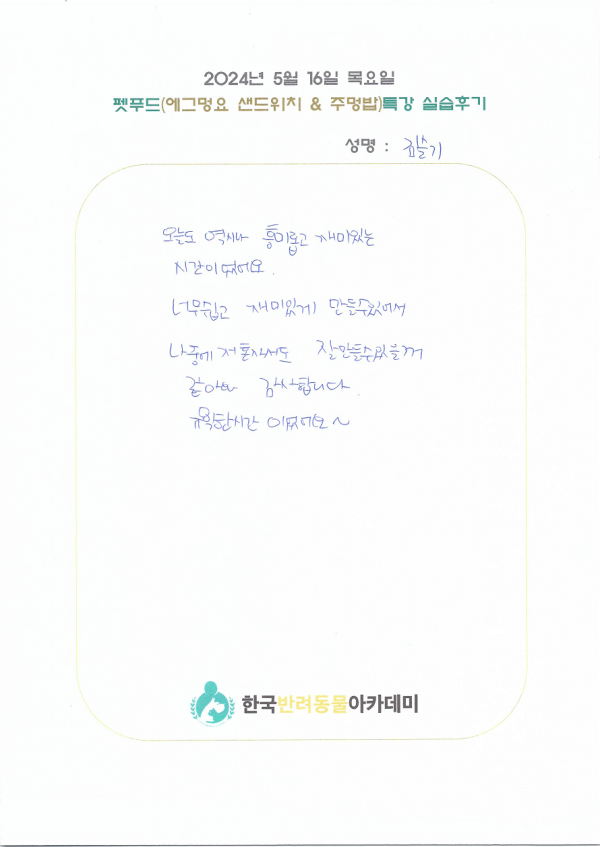 2024년 5월 16일 목요일
펫푸드(에그멍요 샌드위치 & 주멍밥)특강 실습후기
성명 : 김슬기
오늘도 역시나 흥미롭고 재미있는
시간이였어요.
너무쉽고 재미있게 만들수있어서
나중에 저혼자서도 잘만들수있을꺼
같아요 감사합니다
유익한시간 이였어요~
한국반려동물아카데미